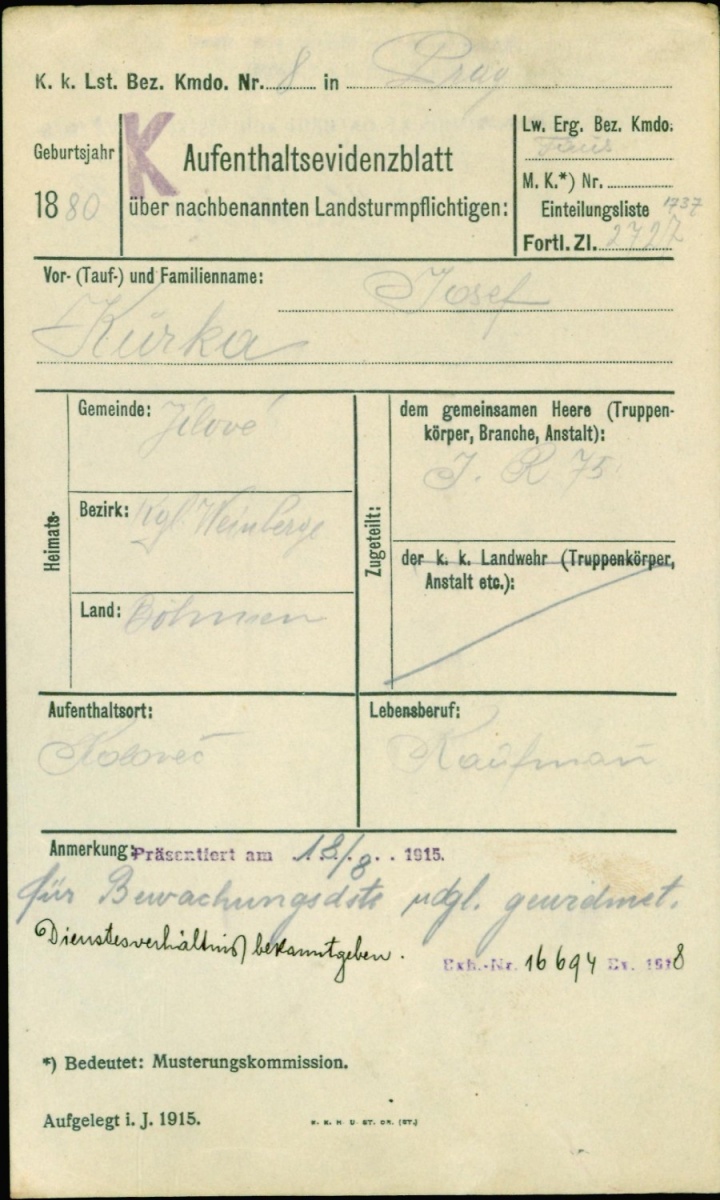 K. k. Lst. Bez. Kmdo. Nr. 8 in Prag
Geburtsjahr
1880
K
Aufenthaltsevidenzblatt
über nachbenannten Landsturmpflichtigen:
Lw. Erg. Bez. Kmdo.
M. K.*) Nr.
Einteilungsliste 1737
Fortl. Zl. 2727
Vor- (Tauf-) und Familienname:
Josef
Kurka
Heimats-
Gemeinde: Jílové
Bezirk: Kgl. Weinberge
Land: Böhmen
Zugeteilt:
dem gemeinsamen Heere (Truppen-
körper, Branche, Anstalt):
I. R 75
der k. k. Landwehr (Truppenkörper,
Anstalt etc.):
Aufenthaltsort:
Koloveč
Lebensberuf:
Kaufmann
Anmerkung: Präsentiert am 18/8. 1915.
für Bewachungsdste udgl. gewidmet.
Dienstesverhältnis bekanntgeben.
Exh.-Nr. 16694 Ev. 1918
*) Bedeutet: Musterungskommission.
Aufgelegt i. J. 1915.
K. K. H. U. ST. DR. (ST.)